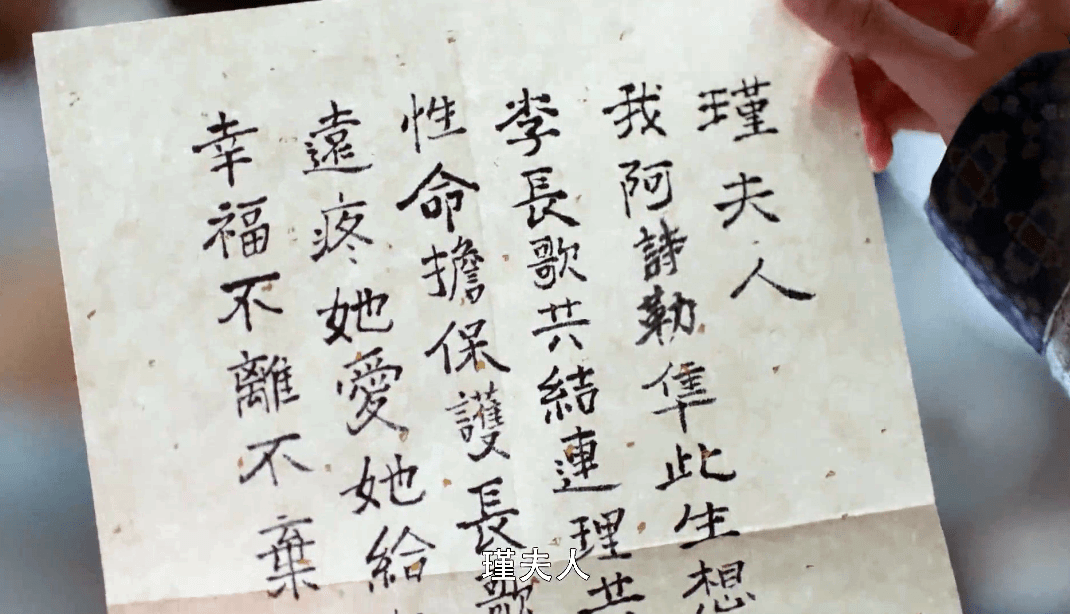 瑾夫人
我阿詩勒隼此生想
李長歌共結連理
性命擔保護長歌
遠疼她愛她給
幸福不離不棄
瑾夫人